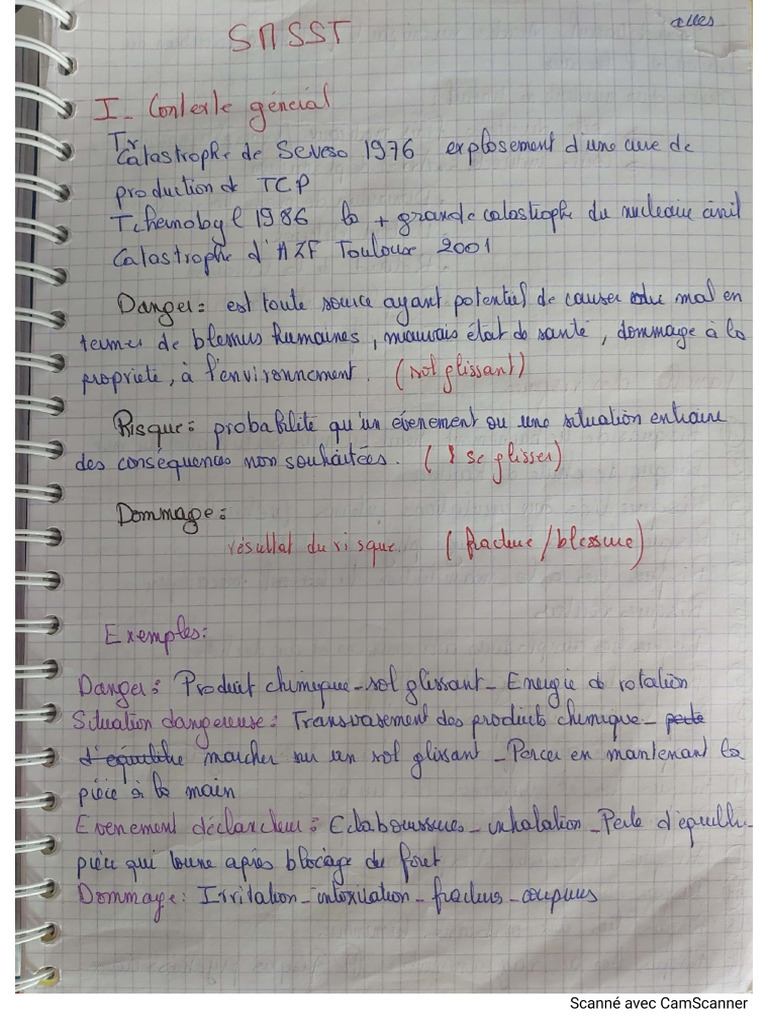 SMSST
I- Contexte général
Tr
Catastrophe de Seveso 1976 explosement d'une cuve de
production de TCP
Tchernobyl 1986 la + grande catastrophe du nucleaire civil
Catastrophe d'AZF Toulouse 2001
Danger: est toute source ayant potentiel de causer du mal en
termes de blessures humaines, mauvais état de santé, dommage à la
propriete, à l'environnement. (sol glissant)
Risque: probabilité qu'un évenement ou une situation entraine
des conséquences non souhaitées. (se glisser)
Dommage:
résultat du risque. (fracture/blessure)
Exemples:
Danger: Produit chimique - sol glissant - Energie de rotation
Situation dangereuse: Transvasement des produits chimique - perte
d'equilibre marcher sur un sol glissant - Percer en maintenant la
pièce à la main
Evenement déclancheur: Eclaboussures - inhalation - Perte d'équilib
pièce qui tourne après blocage du foret
Dommage: Irritation - intoxication - fractures - coupures
Scanné avec CamScanner